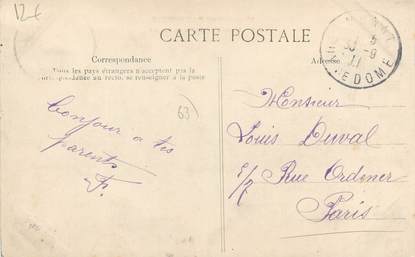 12€
CARTE POSTALE
Correspondance
Tous les pays étrangers n'acceptent pas la
correspondance au recto, se renseigner à la poste
Adresse
63
Bonjour a tes
parents
F.
Monsieur
Louis Duval
Rue Ordener
Paris
DOME